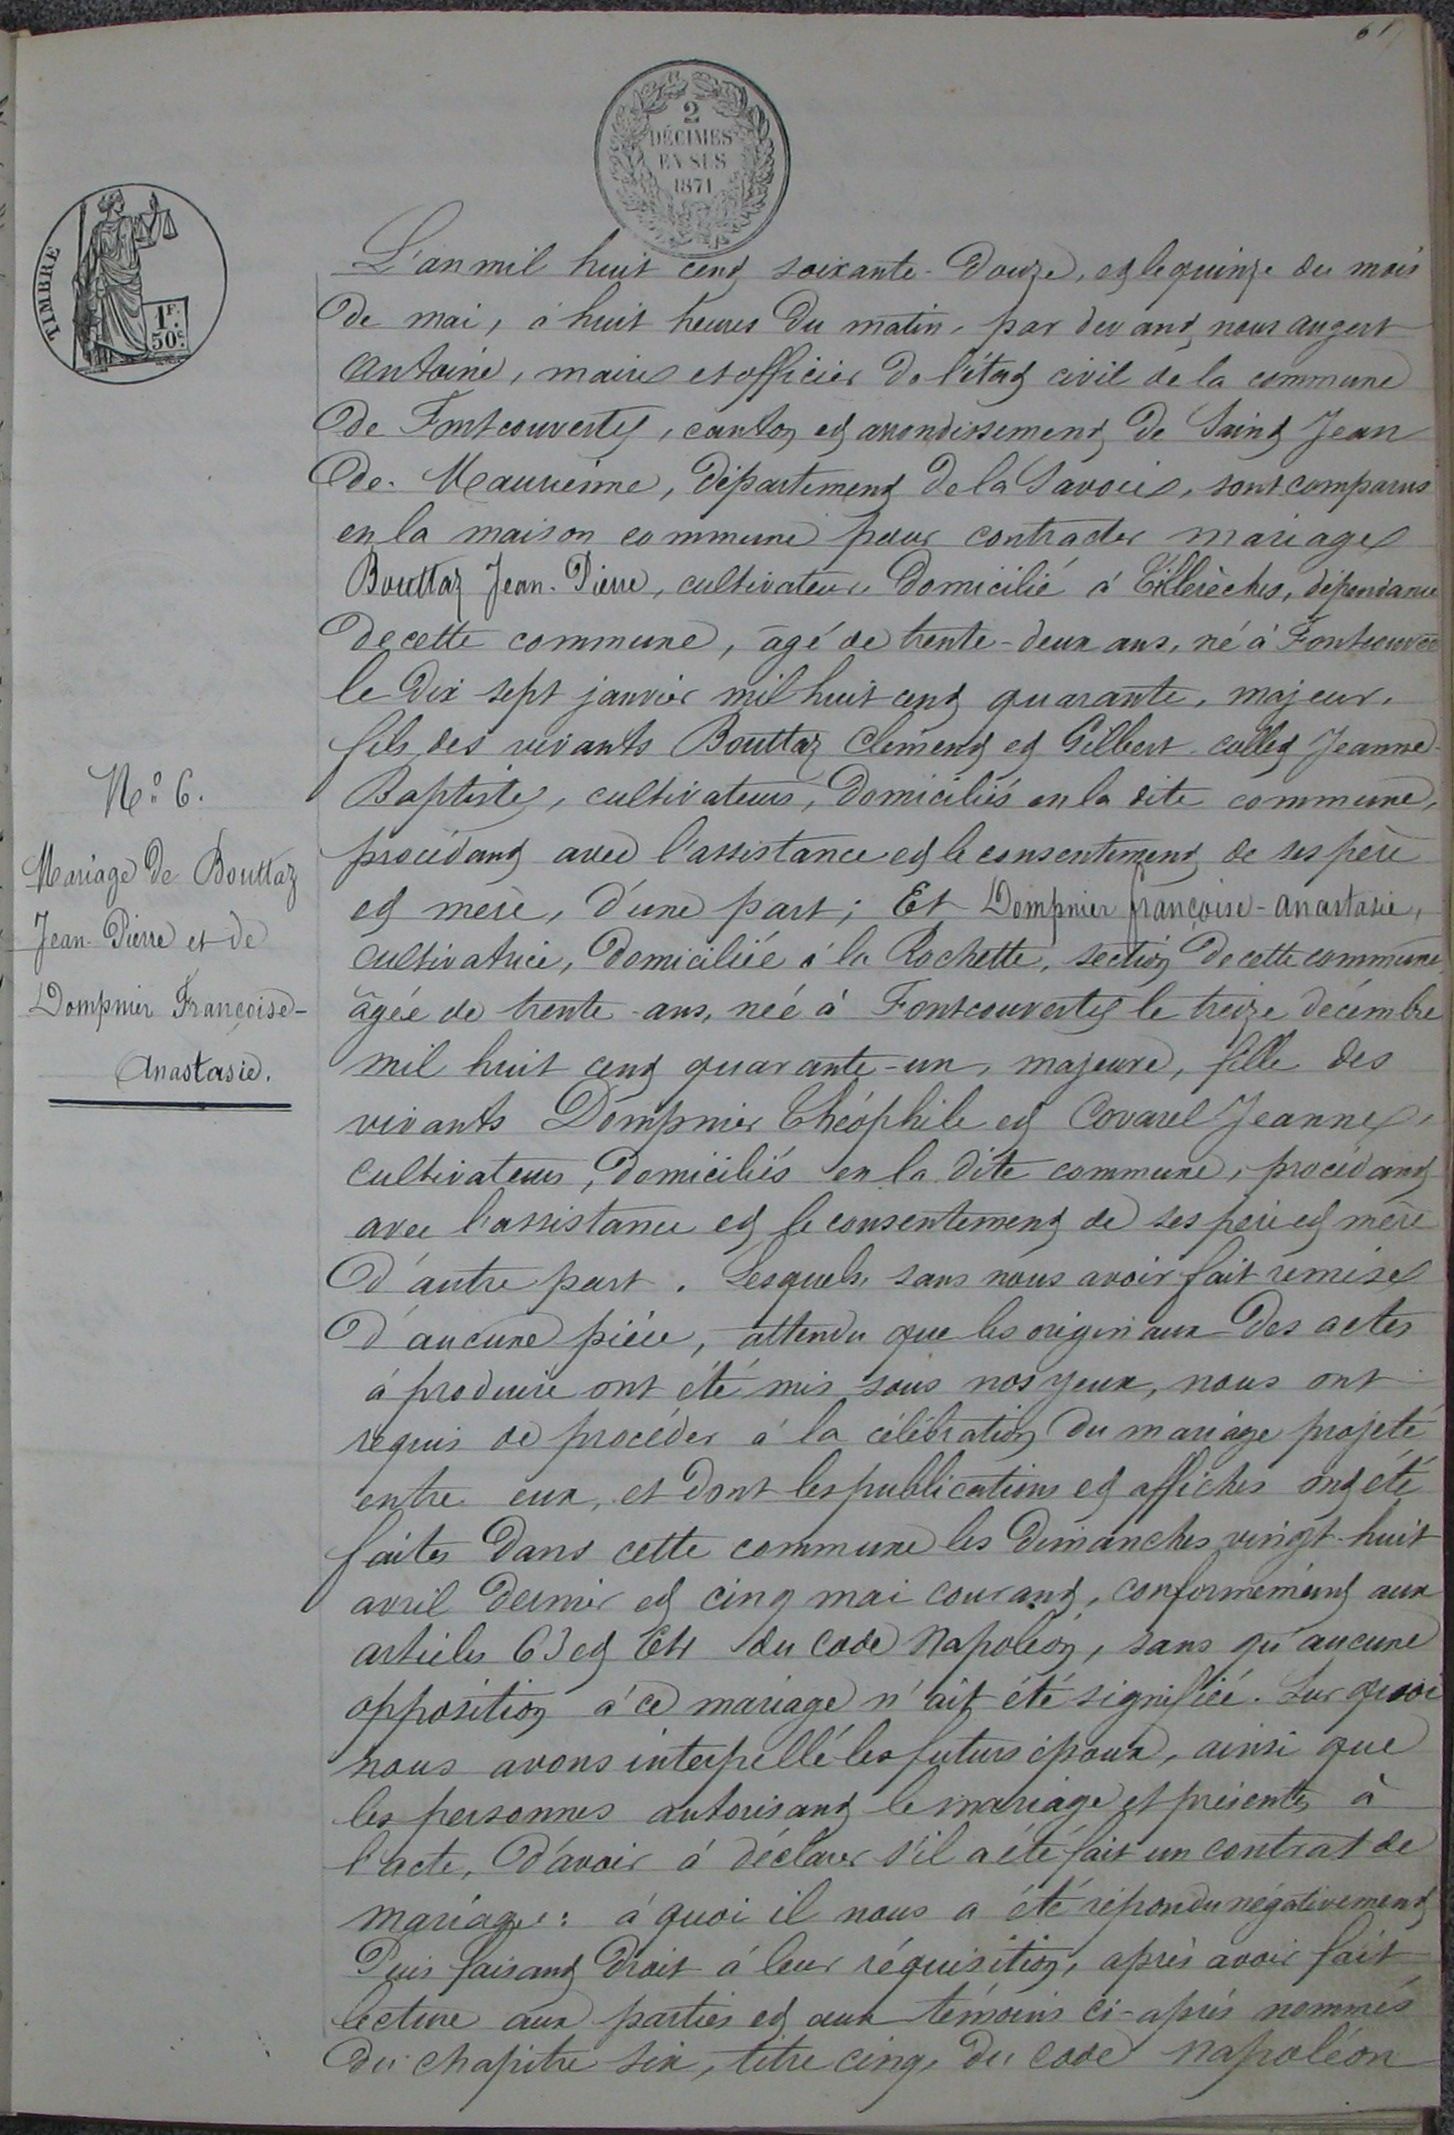 2
DÉCIMES
EN SUS
1871
TIMBRE
1F.
50c.
L'an mil huit cent soixante-douze, et le quinze du mois
de mai, à huit heures du matin, par devant nous augert
antoine, maire et officier de l'état civil de la commune
de Fontcouverte, canton et arrondissement de Saint Jean
de Maurienne, département de la Savoie, sont comparus
en la maison commune pour contracter mariage
Bouttaz Jean-Pierre, cultivateur, domicilié à dépendance
de cette commune, âgé de trente-deux ans, né à Fontcouverte
le dix sept janvier mil huit cent quarante, majeur,
fils des vivants Bouttaz Clément et Gilbert-collet Jeanne-
Baptiste, cultivateurs, domiciliés en la dite commune,
procédant avec l'assistance et le consentement de ses père
et mère, d'une part; Et Dompnier françoise-anastasie,
cultivatrice, domiciliée à la Rochette, section de cette commune,
âgée de trente ans, née à Fontcouverte le treize décembre
mil huit cent quarante-un, majeure, fille des
vivants Dompnier Théophile et Covarel Jeanne,
cultivateurs, domiciliés en la dite commune, procédant
avec l'assistance et le consentement de ses père et mère
d'autre part. Lesquels, sans nous avoir fait remise
d'aucune pièce, attendu que les originaux des actes
à produire ont été mis sous nos yeux, nous ont
requis de procéder à la célébration du mariage projeté
entre eux, et dont les publications et affiches ont été
faites dans cette commune les dimanches vingt-huit
avril dernier et cinq mai courant, conformément aux
articles 63 et 64 du code Napoléon, sans qu'aucune
opposition à ce mariage n'ait été signifiée. Sur quoi
nous avons interpellé les futurs époux, ainsi que
les personnes autorisant le mariage et présentes à
l'acte, d'avoir à déclarer s'il a été fait un contrat de
mariage: à quoi il nous a été répondu négativement
Puis faisant droit à leur réquisition, après avoir fait
lecture aux parties et aux témoins ci-après nommés
du chapitre six, titre cinq, du code Napoléon
N° 6.
Mariage de Bouttaz
Jean-Pierre et de
Dompnier Françoise-
Anastasie.